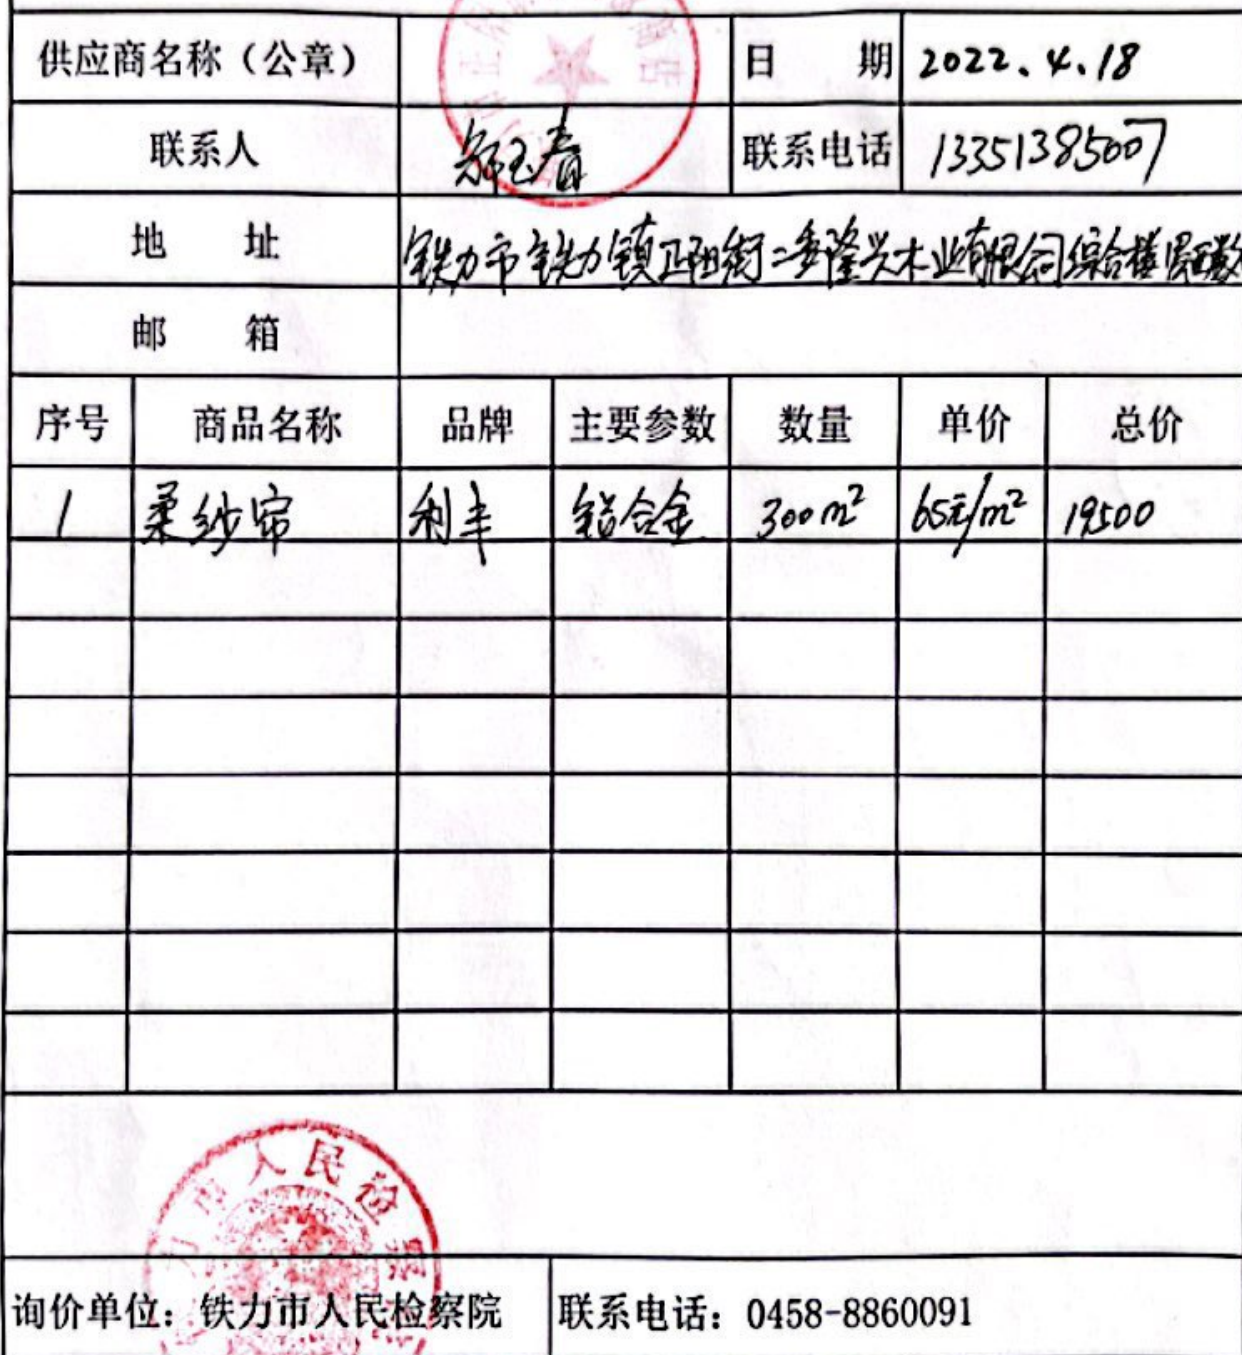 供应商名称（公章） 日 期 2022.4.18
联系人 玉春 联系电话 13351385007
地 址 铁力市铁力镇正阳街二委隆兴木业有限公司综合楼
邮 箱
序号 商品名称 品牌 主要参数 数量 单价 总价
1 柔纱帘 利丰 铝合金 300m² 65元/m² 19500
力市人民检察
询价单位：铁力市人民检察院 联系电话：0458-8860091